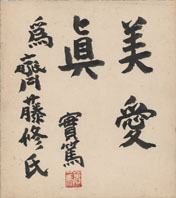 美愛
眞
實篤
為齊藤修氏